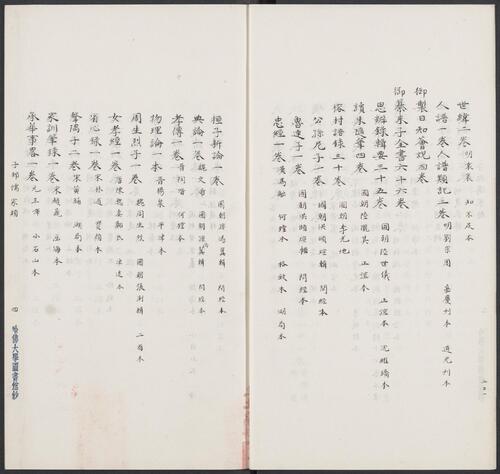 世緯二卷 明袁袠 知不足本
人譜一卷人譜類記二卷 明劉宗周 嘉慶刊本 道光刊本
御製日知薈說四卷
御纂朱子全書六十六卷
思辨錄輯要三十五卷 國朝陸世儀 正誼本 沈維璚本
讀朱隨筆四卷 國朝陸隴其 正誼本
榕村語錄三十卷 國朝李光地
公孫尼子一卷 國朝洪頤煊輯 問經本
魯連子一卷 國朝洪頤煊輯 問經本
忠經一卷 漢馬融 何鏜本 格致本 湖局本
桓子新論一卷 國朝孫馮翼輯 問經本
典論一卷 魏文帝 國朝孫馮翼輯 問經本
孝傳一卷 晉陶潛 何鏜本
物理論一本 晉楊泉 平津本
周生烈子一卷 魏周生烈 國朝張澍輯 二酉本
女孝經一卷 唐陳邈妻鄭氏 津逮本
省心錄一卷 宋林逋 寶顏本
聱隅子二卷 宋黃晞 湖局本
家訓筆錄一卷 宋趙鼎 函海本
承華事略一卷 元王惲 小石山本
子部儒家類
四
哈佛大學圖書館鈔